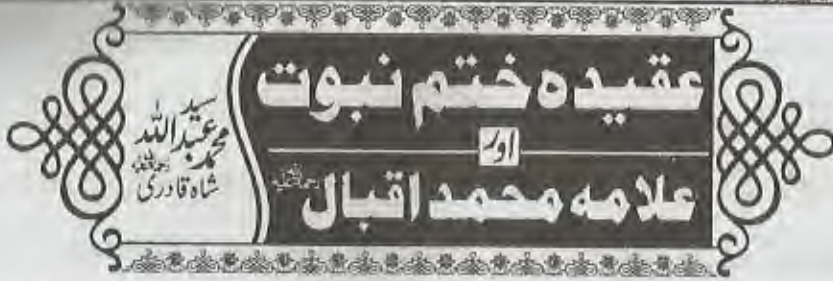 عقیدہ ختم نبوت
اور
علامہ محمد اقبال
سید
محمد عبداللہ
شاہ قادری